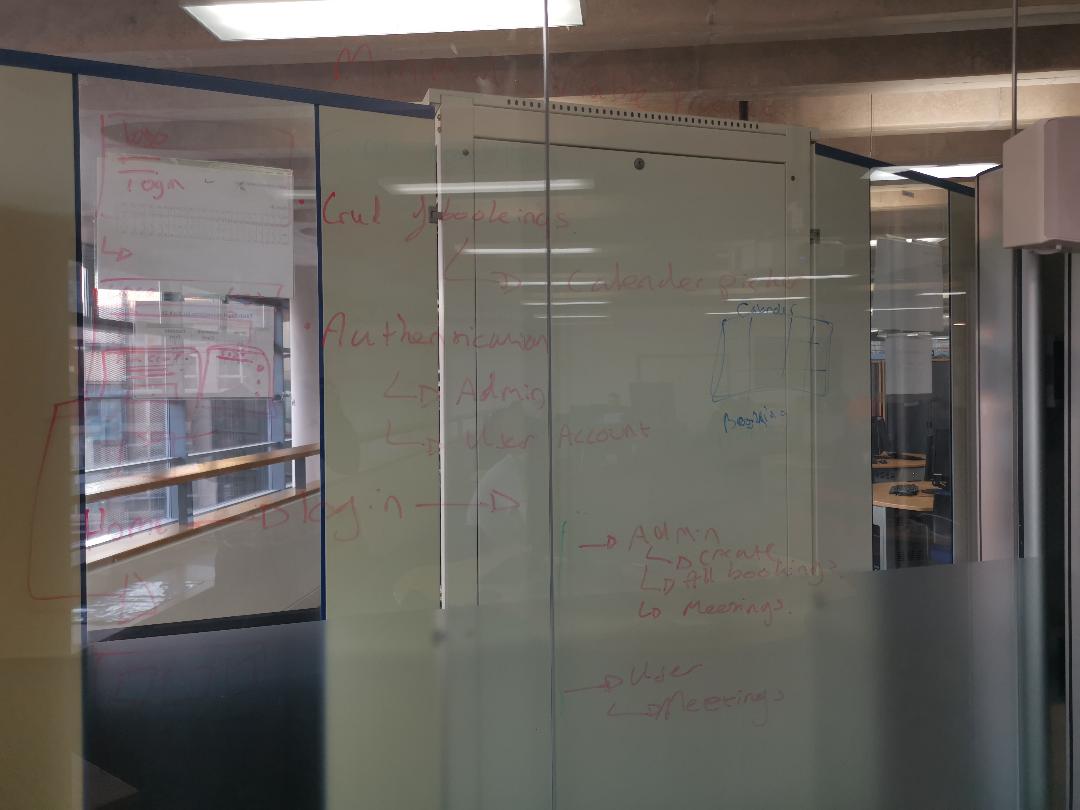 Logo
login
• Crud of bookings
Calender picker
Calender
• Authentication
Admin
User Account
Booking
Home login
Admin
create
All bookings
Meetings.
User
Meetings